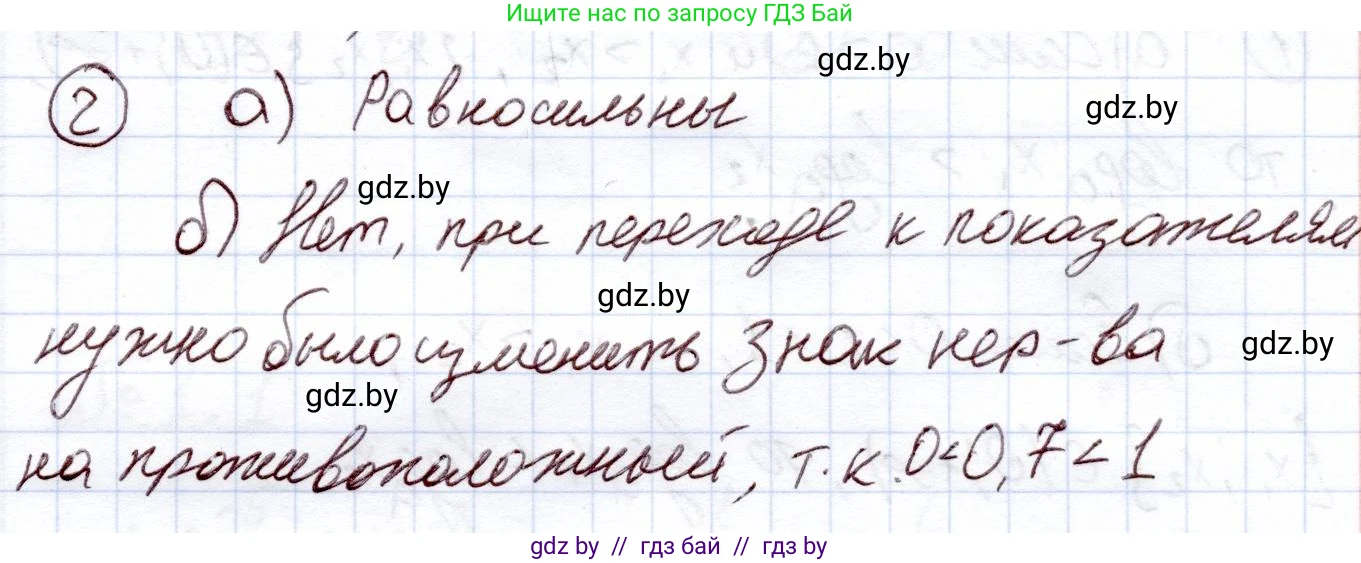 Ищите нас по запросу ГДЗ Бай
gdz.by
2 а) Равносильны
gdz.by
gdz.by
б) Нет, при переходе к показателям
gdz.by
нужно было изменить знак нер-ва
gdz.by
gdz.by
на противоположный, т.к. 0<0,7<1
gdz by // гдз бай // гдз by